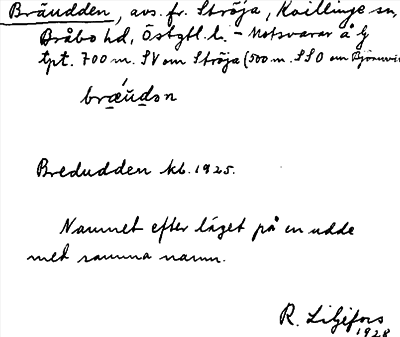 Bräudden, avs. fr. Ströja, Kvillinge sn,
Bråbo hd, Östgtl. l. – Motsvarar å G
tpt. 700 m. SV om Ströja (500 m. SSO om
bræ̀udən
Bredudden kb. 1925.
Namnet efter läget på en udde
med samma namn.
R. Liljefors
1928